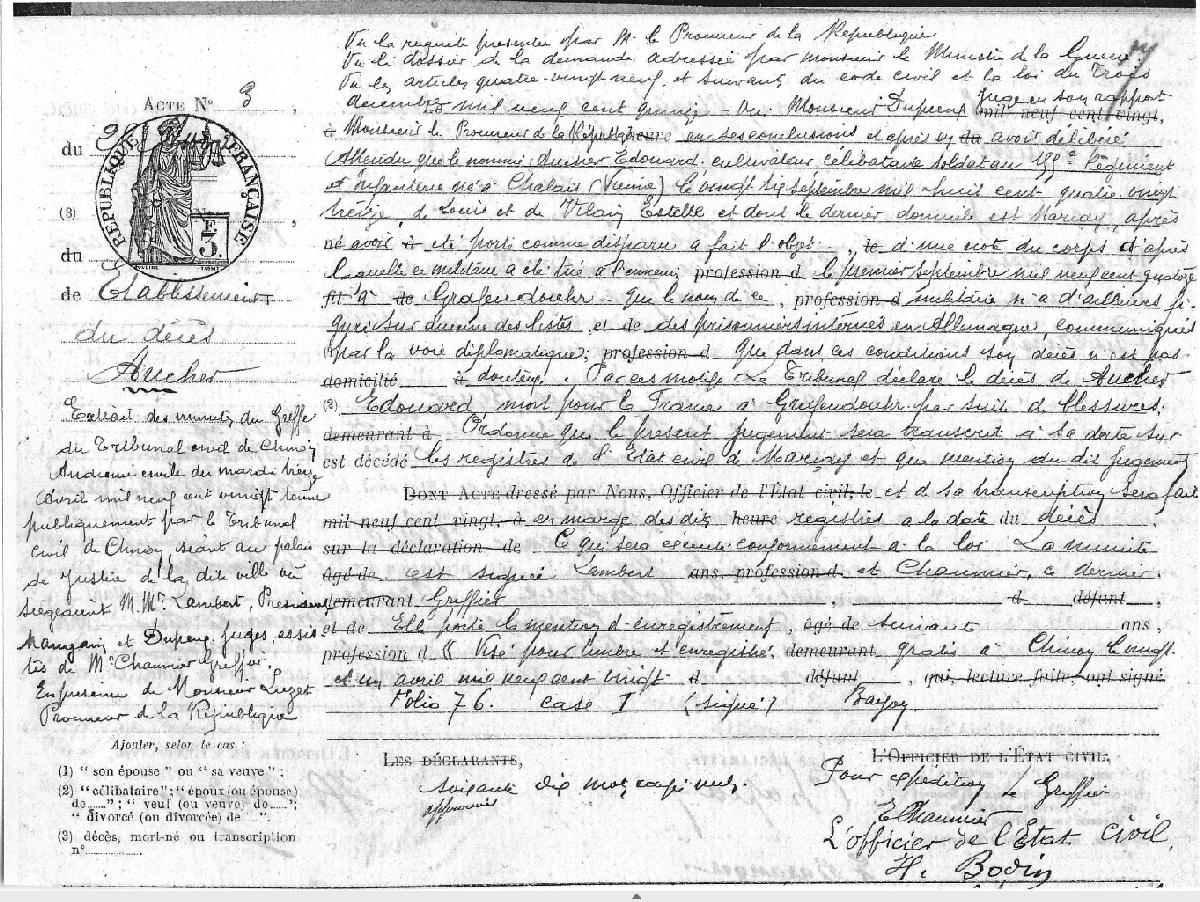 Acte N° 3
du 9
RÉPUBLIQUE FRANÇAISE
E.
3.
(3)
du
de Etablissement
du décès
Aucher
Extrait des minutes du Greffe
du Tribunal civil de Chinon
Audience civile du mardi treize
avril mil neuf cent vingt tenue
publiquement par le Tribunal
civil de Chinon séant au palais
de Justice de la dite ville où
siégeaient M. Mr. Lambert, Président
et Dupeux, juges, assis
tés de Mr Chaumier Greffier.
En présence de Monsieur Luzet
Procureur de la République
Ajouter, selon le cas :
(1) “ son épouse ” ou “ sa veuve ” ;
(2) “ célibataire ” ; “ époux (ou épouse)
de...... ” ; “ veuf (ou veuve) de...... ” ;
“ divorcé (ou divorcée) de ... ”.
(3) décès, mort-né ou transcription
n°
Vu la requête présentée par M. le Procureur de la République
Vu le dossier de la demande adressée par monsieur le Ministre de la Guerre
Vu les articles quatre-vingt neuf et suivants du code civil et la loi du trois
décembre mil neuf cent quinze - Ouï Monsieur Dupeux Juge en son rapport
mil neuf cent vingt,
à Monsieur le Procureur de la République heure en ses conclusions et après en du avoir délibéré
Attendu que le nommé Aucher Edouard, cultivateur, célibataire soldat au Régiment
d'infanterie né à Chalais (Vienne) le vingt six septembre mil huit cent quatre vingt
treize, de Louis et de Vilain Estelle et dont le dernier domicile est Marçay, après
né avoir à été porté comme disparu a fait l'objet, le d'une note du corps d'après
laquelle ce militaire a été tué à l'ennemi profession d le premier septembre mil neuf cent quatorze
fil à de Grafenwoehr - que le nom de ce, profession d militaire n'a d'ailleurs fi
guré sur aucune des listes, et de des prisonniers internés en Allemagne, communiquées
(1) par la voie diplomatique; profession d que dans ces conditions son décès n'est pas
domicilié à douteux. Par ces motifs - Le Tribunal déclare le décès de Aucher
(2) Edouard, mort pour la France à par suite de blessures.
demeurant à Ordonne que le présent jugement sera transcrit à sa date sur
est décédé les registres de l'Etat civil de Marçay et que mention du dit jugement
Dont Acte dressé par Nous, Officier de l'État civil, le et de sa transcription sera faite
mil neuf cent vingt, à en marge des dits heure registres à la date du décès
sur la déclaration de Ce qui sera exécuté conformément à la loi La minute
âgé de est signée Lambert ans, profession d et Chaumier, ce dernier
demeurant Greffier, d défunt,
et de Elle porte la mention d'enregistrement, âgé de suivante ans,
profession d “ Visé pour timbre et enregistré, demeurant gratis à Chinon le vingt
et un avril mil neuf cent vingt d défunt, qui, lecture faite, ont signé
Folio 76. Case 1 (signé)
Les Déclarants,
L'Officier de l'État civil,
Soixante dix mots rayés nuls.
approuvés
Pour expédition le Greffier
E Chaumier
L'officier de l'État Civil,
H. Bodin